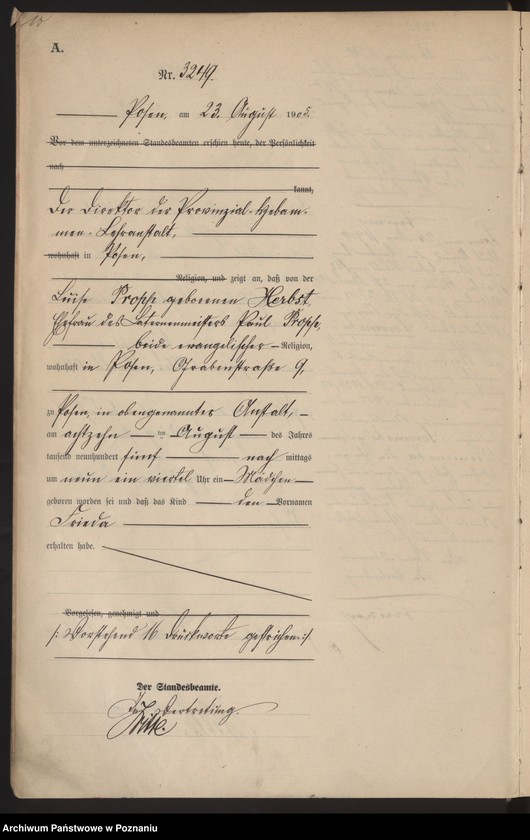 A.
Nr. 3249.
Posen, am 23. August 1905.
Vor dem unterzeichneten Standesbeamten erschien heute, der Persönlichkeit
nach
kannt,
Der Direktor der Provinzial-Hebam-
men-Lehranstalt,
wohnhaft in Posen,
Religion, und zeigt an, daß von der
Luise Propse geborenen Herbst,
Ehefrau des Laternenmeisters Paul Propse,
beide evangelischer Religion,
wohnhaft in Posen, Grabenstraße 9,
zu Posen, in obengenannter Anstalt,
am achtzehn ten August des Jahres
tausend neunhundert fünf nach mittags
um neun ein viertel Uhr ein Mädchen
geboren worden sei und daß das Kind den Vornamen
Frieda
erhalten habe.
Vorgelesen, genehmigt und
/: Vorstehend 16 Druckworte gestrichen. :/
Der Standesbeamte.
In Vertretung.
Archiwum Państwowe w Poznaniu